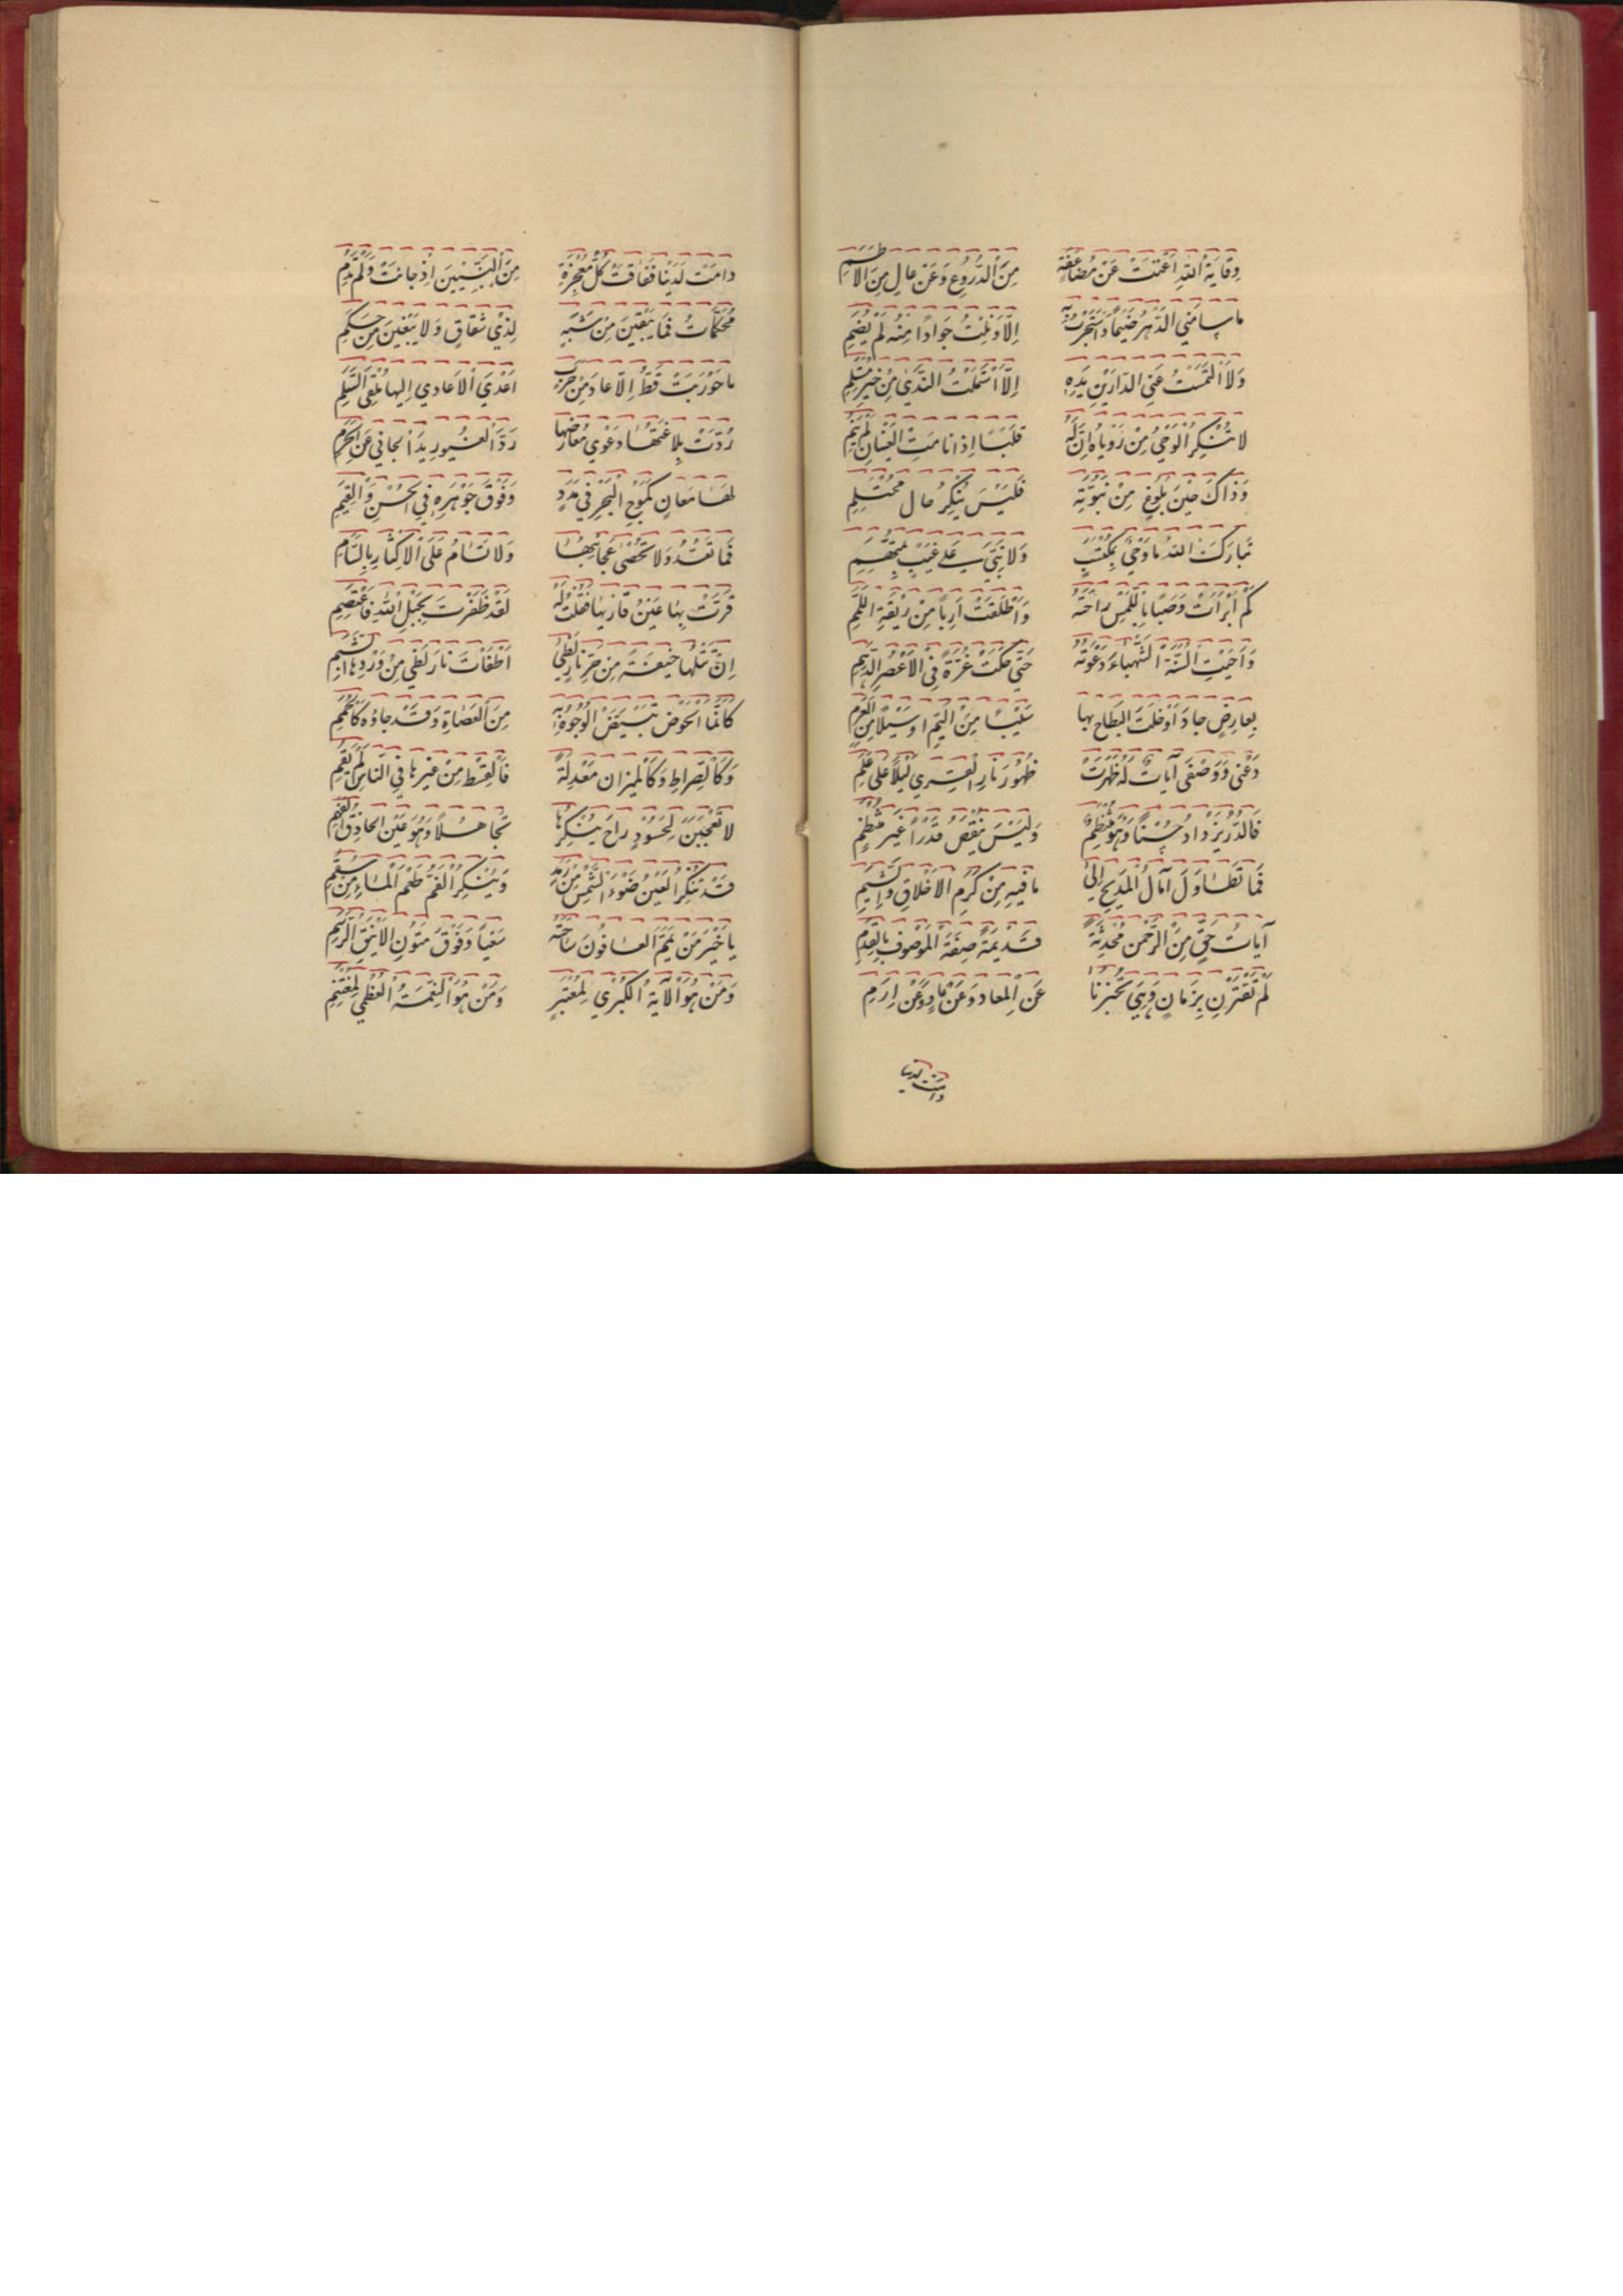 وِقَايَةُ اللّٰهِ اَغْنَتْ عَنْ مُضَاعَفَةٍ مِنَ الدُّرُوعِ وَعَنْ عَالٍ مِنَ الْاُطُمِ
مَا سَامَنِي الدَّهْرُ ضَيْمًا وَاسْتَجَرْتُ بِهِ اِلَّا وَنِلْتُ جَوَادًا مِنْهُ لَمْ يُضَمِ
وَلَا الْتَمَسْتُ غِنَي الدَّارَيْنِ مِنْ يَدِهِ اِلَّا اسْتَلَمْتُ النَّدٰى مِنْ خَيْرِ مُسْتَلَمِ
لَا تُنْكِرِ الْوَحْيَ مِنْ رُؤْيَاهُ اِنَّ لَهُ قَلْبًا اِذَا نَامَتِ الْعَيْنَانِ لَمْ يَنَمِ
وَذَاكَ حِينَ بُلُوغٍ مِنْ نُبُوَّتِهِ فَلَيْسَ يُنْكَرُ حَال مُحْتَلِمِ
تَبَارَكَ اللّٰهُ مَا وَحْيٌ بِمُكْتَسَبٍ وَلَا نَبِيٌّ عَلٰى غَيْبٍ بِمُتَّهَمِ
كَمْ اَبْرَاَتْ وَصَبًا بِاللَّمْسِ رَاحَتُهُ وَاَطْلَقَتْ اَرِبًا مِنْ رِبْقَةِ اللَّمَمِ
وَاَحْيَتِ السَّنَةَ الشَّهْبَاءَ دَعْوَتُهُ حَتّٰي حَكَتْ غُرَّةً فِي الْاَعْصُرِ الدُّهُمِ
بِعَارِضٍ جَادَ اَوْ خِلْتَ الْبِطَاحَ بِهَا سَيْبًا مِنَ الْيَمِّ اَوْ سَيْلًا مِنَ الْعَرِمِ
دَعْنِي وَوَصْفِي آيَاتٌ لَهُ ظَهَرَتْ ظُهُورَ نَارِ الْقِرٰي لَيْلًا عَلٰي عَلَمِ
فَالدُّرُّ يَزْدَادُ حُسْنًا وَهُوَ مُنْتَظِمٌ وَلَيْسَ يَنْقُصُ قَدْرًا غَيْرَ مُنْتَظِمِ
فَمَا تَطَاوَلَ آمَالُ الْمَدِيحِ اِلٰي مَا فِيهِ مِنْ كَرَمِ الْاَخْلَاقِ وَالشِّيَمِ
آيَاتُ حَقٍّ مِنَ الرَّحْمٰنِ مُحْدَثَةٌ قَدِيمَةٌ صِفَةُ الْمَوْصُوفِ بِالْقِدَمِ
لَمْ تَقْتَرِنْ بِزَمَانٍ وَهِيَ تُخْبِرُنَا عَنِ الْمَعَادِ وَعَنْ عَادٍ وَعَنْ اِرَمِ
دامت لدينا
دَامَتْ لَدَيْنَا فَفَاقَتْ كُلَّ مُعْجِزَةٍ مِنَ النَّبِيِّينَ اِذْ جَاءَتْ وَلَمْ تَدُمِ
مُحَكَّمَاتٌ فَمَا يُبْقِينَ مِنْ شُبَهٍ لِذِي شِقَاقٍ وَلَا يَبْغِينَ مِنْ حَكَمِ
مَا حُورِبَتْ قَطُّ اِلَّا عَادَ مِنْ حَرَبٍ اَعْدَي الْاَعَادِي اِلَيْهَا مُلْقِيَ السَّلَمِ
رَدَّتْ بَلَاغَتُهَا دَعْوٰي مُعَارِضِهَا رَدَّ الْغَيُورِ يَدَ الْجَانِي عَنِ الْحَرَمِ
لَهَا مَعَانٍ كَمَوْجِ الْبَحْرِ فِي مَدَدٍ وَفَوْقَ جَوْهَرِهِ فِي الْحُسْنِ وَالْقِيَمِ
فَمَا تُعَدُّ وَلَا تُحْصٰي عَجَائِبُهَا وَلَا تُسَامُ عَلَي الْاِكْثَارِ بِالسَّاَمِ
قَرَّتْ بِهَا عَيْنُ قَارِيهَا فَقُلْتُ لَهُ لَقَدْ ظَفِرْتَ بِحَبْلِ اللّٰهِ فَاعْتَصِمِ
اِنْ تَتْلُهَا خِيفَةً مِنْ حَرِّ نَارِ لَظٰي اَطْفَاْتَ نَارَ لَظٰي مِنْ وِرْدِهَا الشَّبِمِ
كَاَنَّهَا الْحَوْضُ تَبْيَضُّ الْوُجُوهُ بِهِ مِنَ الْعُصَاةِ وَقَدْ جَاؤُهُ كَالْحُمَمِ
وَكَالصِّرَاطِ وَكَالْمِيزَانِ مَعْدِلَةً فَالْقِسْطُ مِنْ غَيْرِهَا فِي النَّاسِ لَمْ يَقُمِ
لَا تَعْجَبَنْ لِحَسُودٍ رَاحَ يُنْكِرُهَا تَجَاهُلًا وَهُوَ عَيْنُ الْحَاذِقِ الْفَهِمِ
قَدْ تُنْكِرُ الْعَيْنُ ضَوْءَ الشَّمْسِ مِنْ رَمَدٍ وَيُنْكِرُ الْفَمُ طَعْمَ الْمَاءِ مِنْ سَقَمِ
يَا خَيْرَ مَنْ يَمَّمَ الْعَافُونَ سَاحَتَهُ سَعْيًا وَفَوْقَ مُتُونِ الْاَيْنُقِ الرُّسُمِ
وَمَنْ هُوَ الْآيَةُ الْكُبْرٰي لِمُعْتَبِرٍ وَمَنْ هُوَ النِّعْمَةُ الْعُظْمٰي لِمُغْتَنِمِ